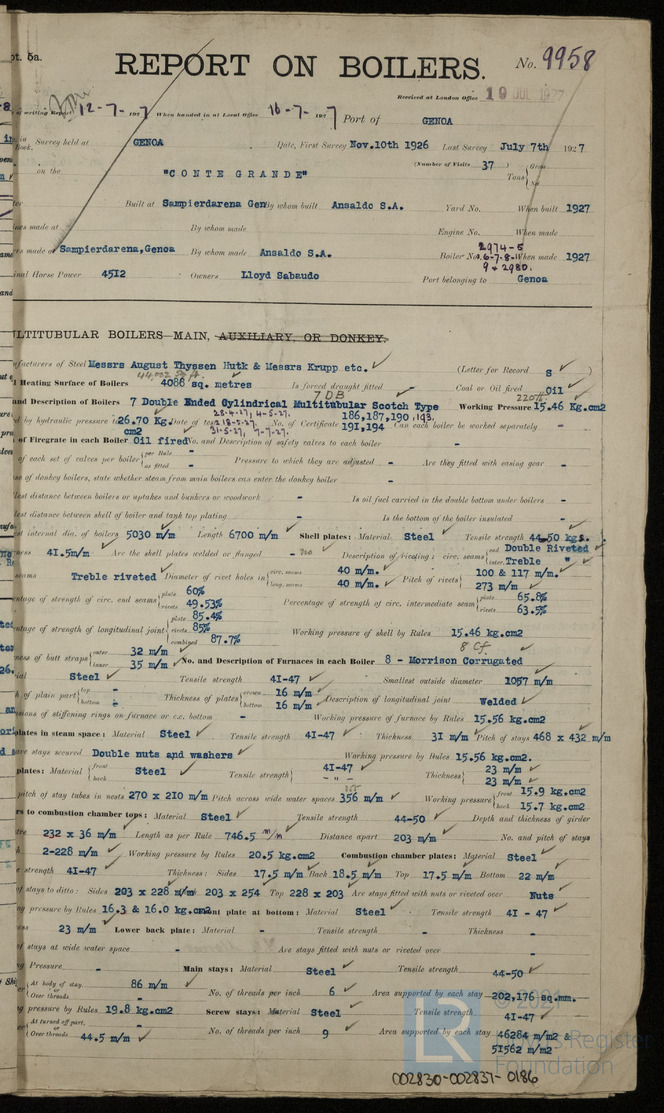 pt. 5a.
REPORT ON BOILERS. No. 9958
Received at London Office 19 JUL 1927
of writing Report 12-7-1927 When handed in at Local Office 16-7-1927 Port of GENOA
Survey held at GENOA Date, First Survey Nov.10th 1926 Last Survey July 7th 1927
Book.
(Number of Visits 37 )
on the "CONTE GRANDE" Tons { Gross
Net
Built at Sampierdarena Gen By whom built Ansaldo S.A. Yard No. When built 1927
nes made at By whom made Engine No. When made
rs made at Sampierdarena,Genoa By whom made Ansaldo S.A. Boiler No. 2974-5 6-7-8- 9 & 2980. When made 1927
inal Horse Power 4512 Owners Lloyd Sabaudo Port belonging to Genoa
LTITUBULAR BOILERS—MAIN, AUXILIARY, OR DONKEY.
ufacturers of Steel Messrs August Thyssen Hutk & Messrs Krupp etc. (Letter for Record S )
l Heating Surface of Boilers 4088 sq. metres Is forced draught fitted - Coal or Oil fired Oil
and Description of Boilers 7 Double Ended Cylindrical Multitubular Scotch Type Working Pressure 15.46 Kg.cm2
7 DB
ed by hydraulic pressure to 26.70 Kg. cm2 Date of test 28-4-27, 4-5-27. 31-5-27, 7-7-27. No. of Certificate 186,187,190,193. 191,194 Can each boiler be worked separately -
of Firegrate in each Boiler Oil fired No. and Description of safety valves to each boiler -
of each set of valves per boiler { per Rule -
as fitted - Pressure to which they are adjusted - Are they fitted with easing gear -
se of donkey boilers, state whether steam from main boilers can enter the donkey boiler -
lest distance between boilers or uptakes and bunkers or woodwork - Is oil fuel carried in the double bottom under boilers -
lest distance between shell of boiler and tank top plating - Is the bottom of the boiler insulated -
st internal dia. of boilers 5030 m/m Length 6700 m/m Shell plates: Material Steel Tensile strength 44-50 kgs.
ness 41.5m/m Are the shell plates welded or flanged - no Description of riveting: circ. seams { end Double Riveted
inter. Treble "
seams Treble riveted Diameter of rivet holes in { circ. seams 40 m/m.
long. seams 40 m/m. Pitch of rivets { 100 & 117 m/m.
273 m/m
ntage of strength of circ. end seams { plate 60%
rivets 49.53% Percentage of strength of circ. intermediate seam { plate 65.8%
rivets 63.5%
ntage of strength of longitudinal joint { plate 85.4%
rivets 85%
combined 87.7% Working pressure of shell by Rules 15.46 kg.cm2
8 Cf.
ness of butt straps { outer 32 m/m
inner 35 m/m No. and Description of Furnaces in each Boiler 8 - Morrison Corrugated
ial Steel Tensile strength 41-47 Smallest outside diameter 1057 m/m
h of plain part { top -
bottom - Thickness of plates { crown 16 m/m
bottom 16 m/m Description of longitudinal joint Welded
nsions of stiffening rings on furnace or c.c. bottom - Working pressure of furnace by Rules 15.56 kg.cm2
plates in steam space: Material Steel Tensile strength 41-47 Thickness 31 m/m Pitch of stays 468 x 432 m/m
are stays secured Double nuts and washers Working pressure by Rules 15.56 kg.cm2.
plates: Material { front
back Steel Tensile strength { 41-47
- " - Thickness { 23 m/m
23 m/m
pitch of stay tubes in nests 270 x 210 m/m Pitch across wide water spaces 356 m/m Working pressure { front 15.9 kg.cm2
back 15.7 kg.cm2
rs to combustion chamber tops: Material Steel Tensile strength 44-50 Depth and thickness of girder
tre 232 x 36 m/m Length as per Rule 746.5 m/m Distance apart 203 m/m No. and pitch of stays
h 2-228 m/m Working pressure by Rules 20.5 kg.cm2 Combustion chamber plates: Material Steel
e strength 41-47 Thickness: Sides 17.5 m/m Back 18.5 m/m Top 17.5 m/m Bottom 22 m/m
of stays to ditto: Sides 203 x 228 m/m 203 x 254 Top 228 x 203 Are stays fitted with nuts or riveted over Nuts
ng pressure by Rules 16.3 & 16.0 kg.cm2 ont plate at bottom: Material Steel Tensile strength 41 - 47
ess 23 m/m Lower back plate: Material - Tensile strength - Thickness -
of stays at wide water space - Are stays fitted with nuts or riveted over -
ng Pressure - Main stays: Material Steel Tensile strength 44-50
At body of stay, 86 m/m
or
Over threads - No. of threads per inch 6 Area supported by each stay 202,176 sq.mm.
ng pressure by Rules 19.8 kg.cm2 Screw stays: Material Steel Tensile strength 41-47
At turned off part, -
or
Over threads 44.5 m/m No. of threads per inch 9 Area supported by each stay 46284 m/m2 &
51562 m/m2
© 2021
LR
Lloyd's Register
Foundation
002830-002837-0186